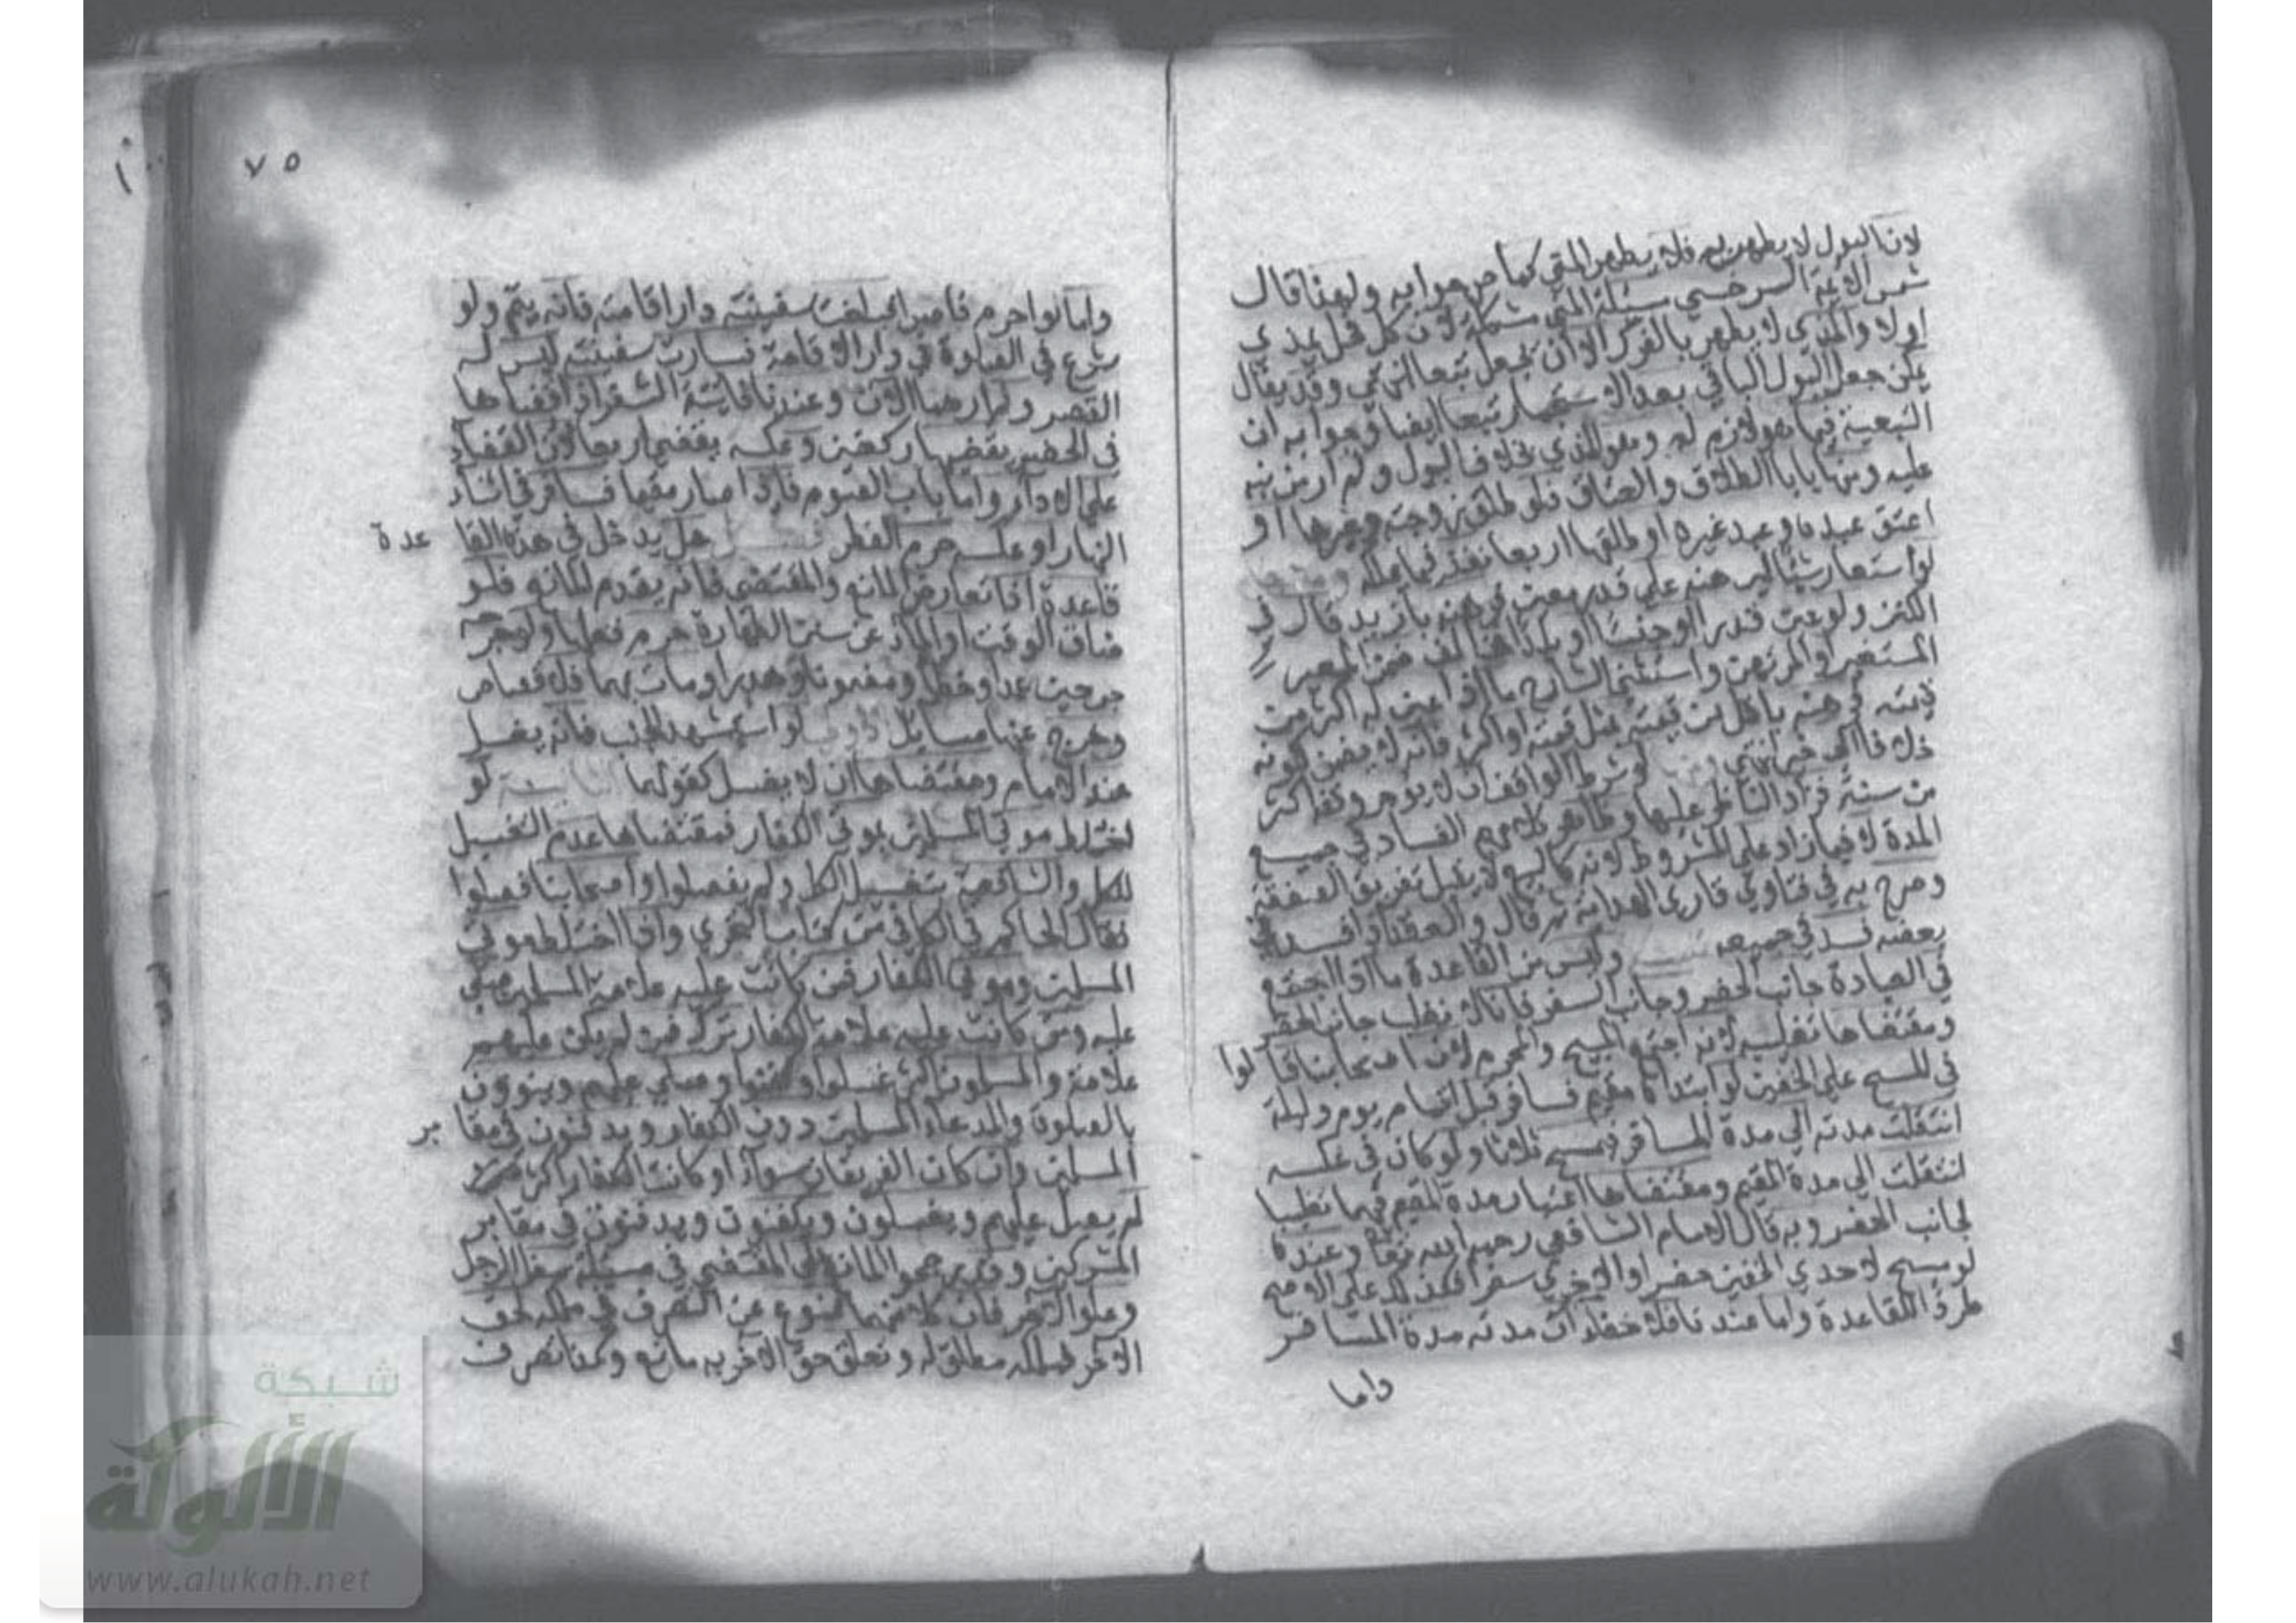 لان البول لا يطهر به فلا يطهر المني كما هو جوابه ولهذا قال
شمس الائمة السرخسي مسئلة المني مشكلة لان كل فحل يمذي
اولا والمذي لا يطهر بالفرك الا ان يجعل تبعا انتهى وقد يقال
يمكن جعل البول الباقي بعد الاستجمار تبعا ايضا وجوابه ان
التبعية فيما هو لازم له وهو المذي بخلاف البول ولم ار من نبه
عليه ومنها باب الطلاق والعتاق فلو طلق زوجته وغيرها او
اعتق عبده وعبد غيره او طلقها اربعا نفذ فيما يملكه
لو استعار شيئا ليرهنه على قدر معين فرهنه بازيد قال في
الكنز ولو عين قدرا او جنسا او بلدا فخالف ضمن المعير
المستعير او المرتهن واستثنى الشارح ما اذا عين له اكثر من
قيمته فرهنه باقل من قيمته مثل قيمته او اكثر فانه لا يضمن لكونه
خلافا الى خير انتهى لو شرط الواقف ان لا يوجر وقفه اكثر
من سنة فزاد الناظر عليها وظاهر كلامهم الفساد في جميع
المدة لا فيما زاد على المشروط لانه كالبيع لا يقبل تفريق الصفقة
وصرح به في فتاوي قاري الهداية ثم قال والعقد اذا فسد في
بعضه فسد في جميعه وليس من القاعدة ما اذا اجتمع
في العبادة جانب الحضر وجانب السفر فانا لا نغلب جانب الحضر
ومقتضاها تغليبه لانه اجتمع المبيح والمحرم لان اصحابنا قالوا
في المسح على الخفين لو ابتداه مقيم فسافر قبل اتمام يوم وليلة
انتقلت مدته الى مدة المسافر فيمسح ثلاثا ولو كان في عكسه
انتقلت الى مدة المقيم ومقتضاها اعتبار مدة المقيم فيهما تغليبا
لجانب الحضر وبه قال الامام الشافعي رحمه الله وعنده
لو مسح لاحدى الخفين حضرا والاخرى سفرا فكذلك على الاصح
طردا للقاعدة واما عندنا فلا خفاء ان مدته مدة المسافر
واما
٧٥
واما لو احرم قاصرا فبلغت سفينته دار اقامته فانه يتم ولو
شرع في الصلوة في دار الاقامة فسارت سفينته ليس له
القصر ولم ارها الان وعندنا فائتة السفر اذا قضاها
في الحضر يقضيها ركعتين وعكسه يقضيها اربعا لان القضاء
على الاداء واما باب الصوم فاذا اصبح مقيما فسافر في اثناء
النهار او عكسه حرم الفطر هل يدخل في هذه القاعدة
قاعدة اذا تعارض المانع والمقتضي فانه يقدم المانع فلو
ضاق الوقت او الماء عن سنن الطهارة حرم فعلها ولو جرحه
جرحين عمدا وخطأ ومضمونا وهدرا ومات بهما فلا قصاص
وخرج عنها مسايل لو استشهد الجنب فانه يغسل
عند الامام ومقتضاها ان لا يغسل كقولهما لو
اختلط موتى المسلمين بموتى الكفار فمقتضاها عدم التغسيل
للكل والشافعية بتغسيل الكل ولم يفصلوا واصحابنا فصلوا
فقال الحاكم في الكافي من كتاب التحري واذا اختلط موتى
المسلمين وموتى الكفار فمن كانت عليه علامة المسلمين صلي
عليه ومن كانت عليه علامة الكفار ترك فان لم يكن عليهم
علامة والمسلمون اكثر غسلوا وكفنوا وصلي عليهم وينوون
بالصلوة والدعاء المسلمين دون الكفار ويدفنون في مقابر
المسلمين وان كان الفريقان سواء او كانت الكفار اكثر
لم يصل عليهم ويغسلون ويكفنون ويدفنون في مقابر
المشركين وقد رجحوا المانع على المقتضي في مسئلة سفل لرجل
وعلو لآخر فان كلا منهما ممنوع عن التصرف في ملكه لحق
الاخر فملكه مطلق له وتعلق حق الاخر به مانع وكذا تصرف
شبكة
الألوكة
www.alukah.net